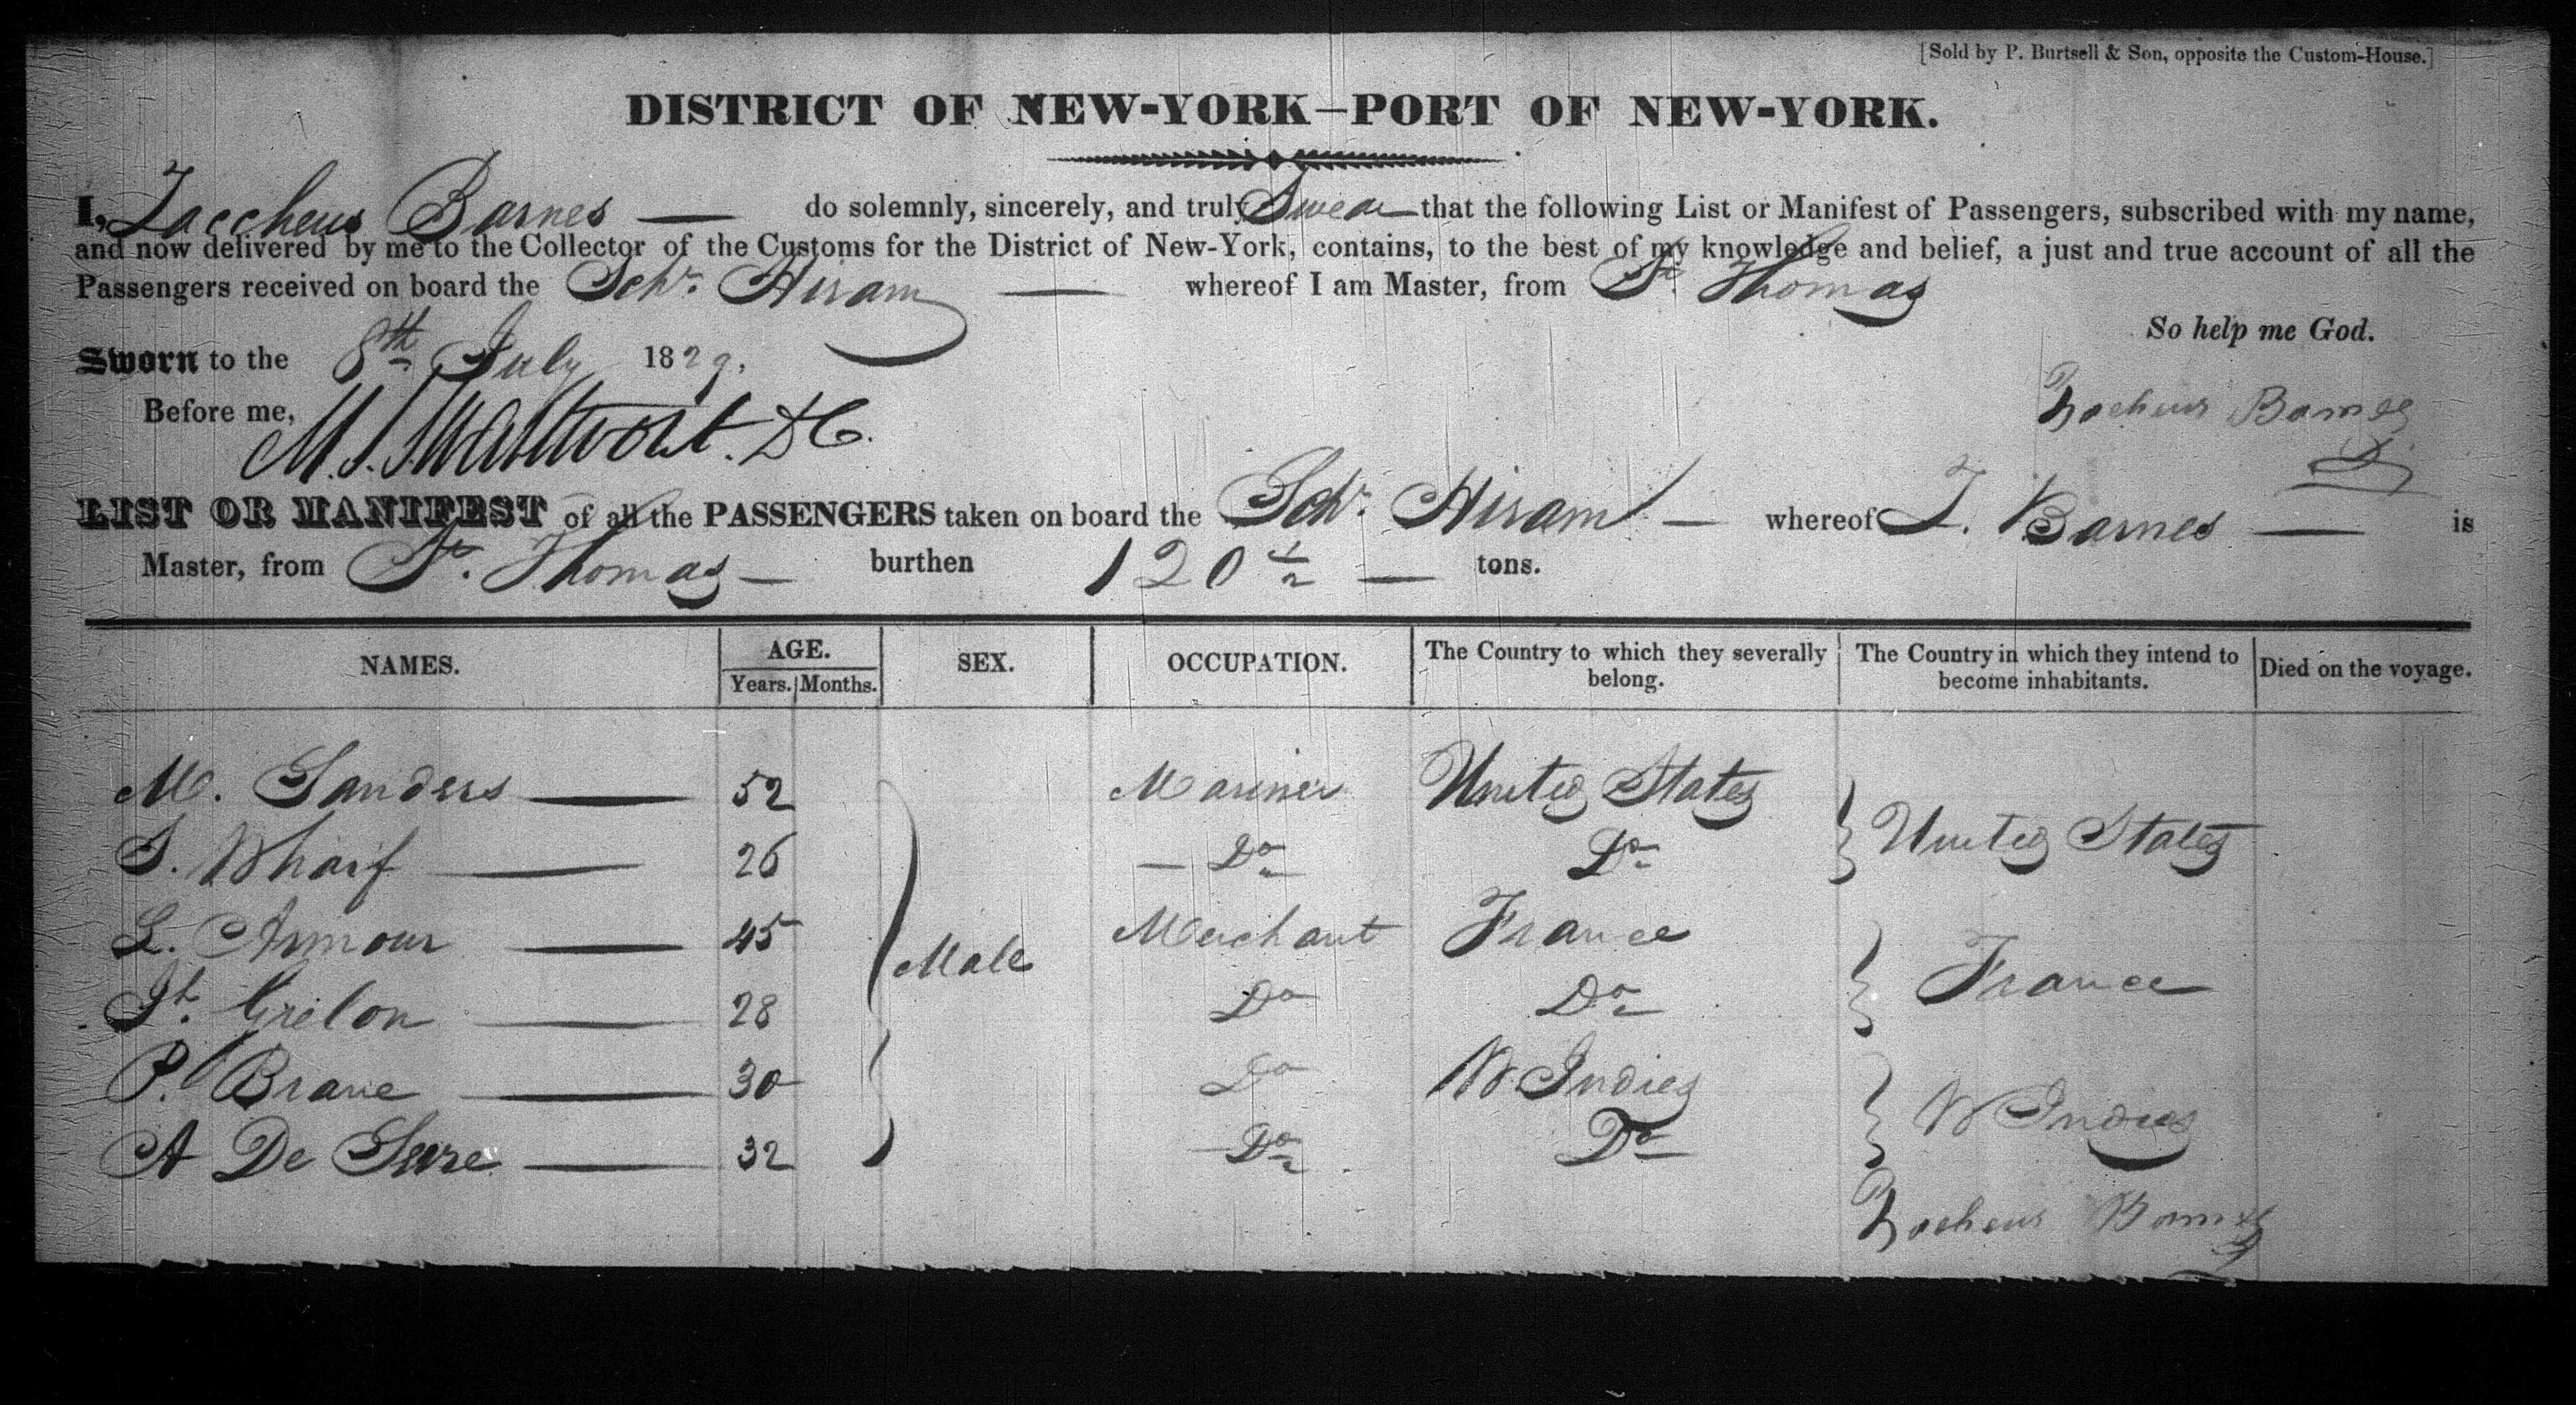 [Sold by P. Burtsell & Son, opposite the Custom-House.]
DISTRICT OF NEW-YORK—PORT OF NEW-YORK.
I, Zaccheus Barnes — do solemnly, sincerely, and truly Swear that the following List or Manifest of Passengers, subscribed with my name,
and now delivered by me to the Collector of the Customs for the District of New-York, contains, to the best of my knowledge and belief, a just and true account of all the
Passengers received on board the Schr. Hiram — whereof I am Master, from St. Thomas
So help me God.
Sworn to the 8th July 1829.
Zacheus Barnes
Before me,
LIST OR MANIFEST of all the PASSENGERS taken on board the Schr. Hiram — whereof Z. Barnes — is
Master, from St. Thomas — burthen 120 1/2 — tons.
NAMES. AGE. Years. Months. SEX. OCCUPATION. The Country to which they severally belong. The Country in which they intend to become inhabitants. Died on the voyage.
M. Sanders — 52 Mariner United States
S. Wharf — 26 — Do Do United States
L. Armour — 45 Merchant France
Male
Jh. Grelon — 28 Do Do France
P. Brave — 30 Do W Indies
A De — 32 Do Do W Indies
Zacheus Barnes